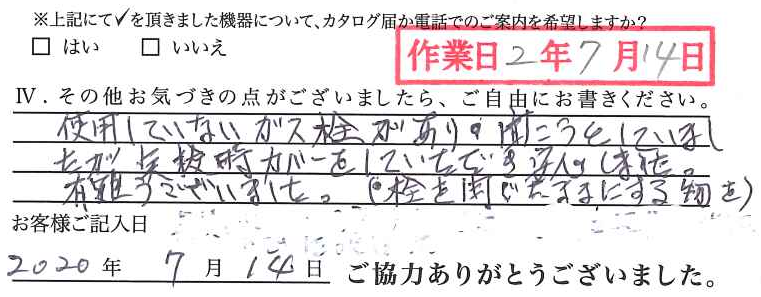 ※上記にて✓を頂きました機器について、カタログ届か電話でのご案内を希望しますか？
□ はい □ いいえ
作業日 2年7月14日
Ⅳ．その他お気づきの点がございましたら、ご自由にお書きください。
使用していないガス栓があり開こうとしていまし
たが点検時カバーをしていただき安心しました。
有難うございました。（栓を閉じたままにする物を）
お客様ご記入日
2020年 7月 14日 ご協力ありがとうございました。